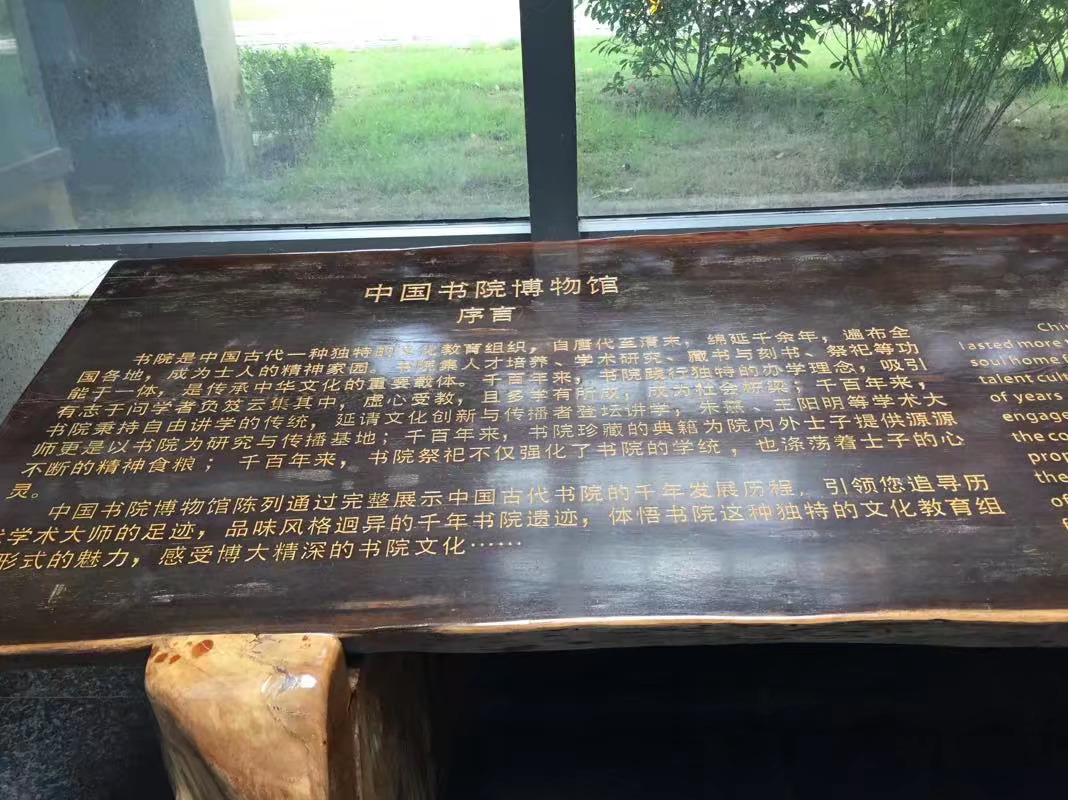 中国书院博物馆
序言
书院是中国古代一种独特的文化教育组织，自唐代至清末，绵延千余年，遍布全
国各地，成为士人的精神家园。书院集人才培养、学术研究、藏书与刻书、祭祀等功
能于一体，是传承中华文化的重要载体。千百年来，书院践行独特的办学理念，吸引
有志于问学者负笈云集其中，虚心受教，且多学有所成，成为社会桥梁；千百年来，
书院秉持自由讲学的传统，延请文化创新与传播者登坛讲学，朱熹、王阳明等学术大
师更是以书院为研究与传播基地；千百年来，书院珍藏的典籍为院内外士子提供源源
不断的精神食粮；千百年来，书院祭祀不仅强化了书院的学统，也涤荡着士子的心
灵。
中国书院博物馆陈列通过完整展示中国古代书院的千年发展历程，引领您追寻历
学术大师的足迹，品味风格迥异的千年书院遗迹，体悟书院这种独特的文化教育组
形式的魅力，感受博大精深的书院文化……
Chi
lasted more
soul home f
talent cult
of years
engage
the co
prop
the
of